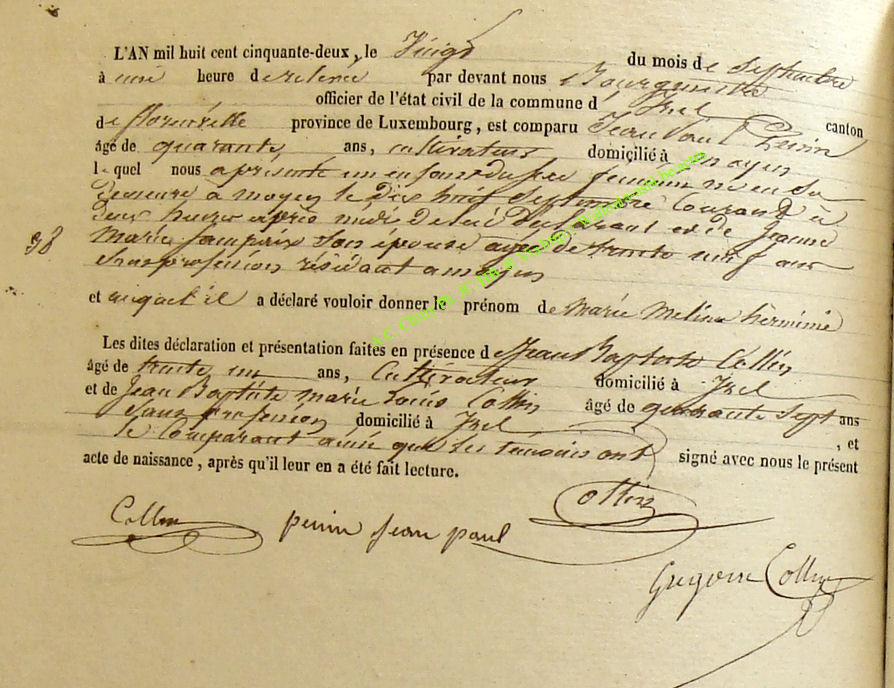 L'AN mil huit cent cinquante-deux, le Vingt du mois de Septembre
à une heure de relevée par devant nous Bourgmestre
officier de l'état civil de la commune d' Izel canton
de florenville province de Luxembourg, est comparu Jean Paul Perin
âgé de quarante, ans, cultivateur domicilié à moyen
lequel nous a présenté un enfant du sexe féminin né en sa
demeure a moyen le Dix neuf Septembre Courant à
deux heures après midi de lui Déclarant et de Jeanne
Marie son épouse agée de trente neuf ans
98
sans profession résidant a moyen
et auquel il a déclaré vouloir donner le prénom de Marie Melina herminie
Les dites déclaration et présentation faites en présence de Jean Baptiste Collin
âgé de trente un ans, Cultivateur domicilié à Izel
et de Jean Baptiste marie Louis Collin âgé de quarante sept ans
sans profession domicilié à Izel , et
le Comparant ainsi que les témoins ont signé avec nous le présent
acte de naissance, après qu'il leur en a été fait lecture.
Collin perin jean paul Collin
Gregoire Collin